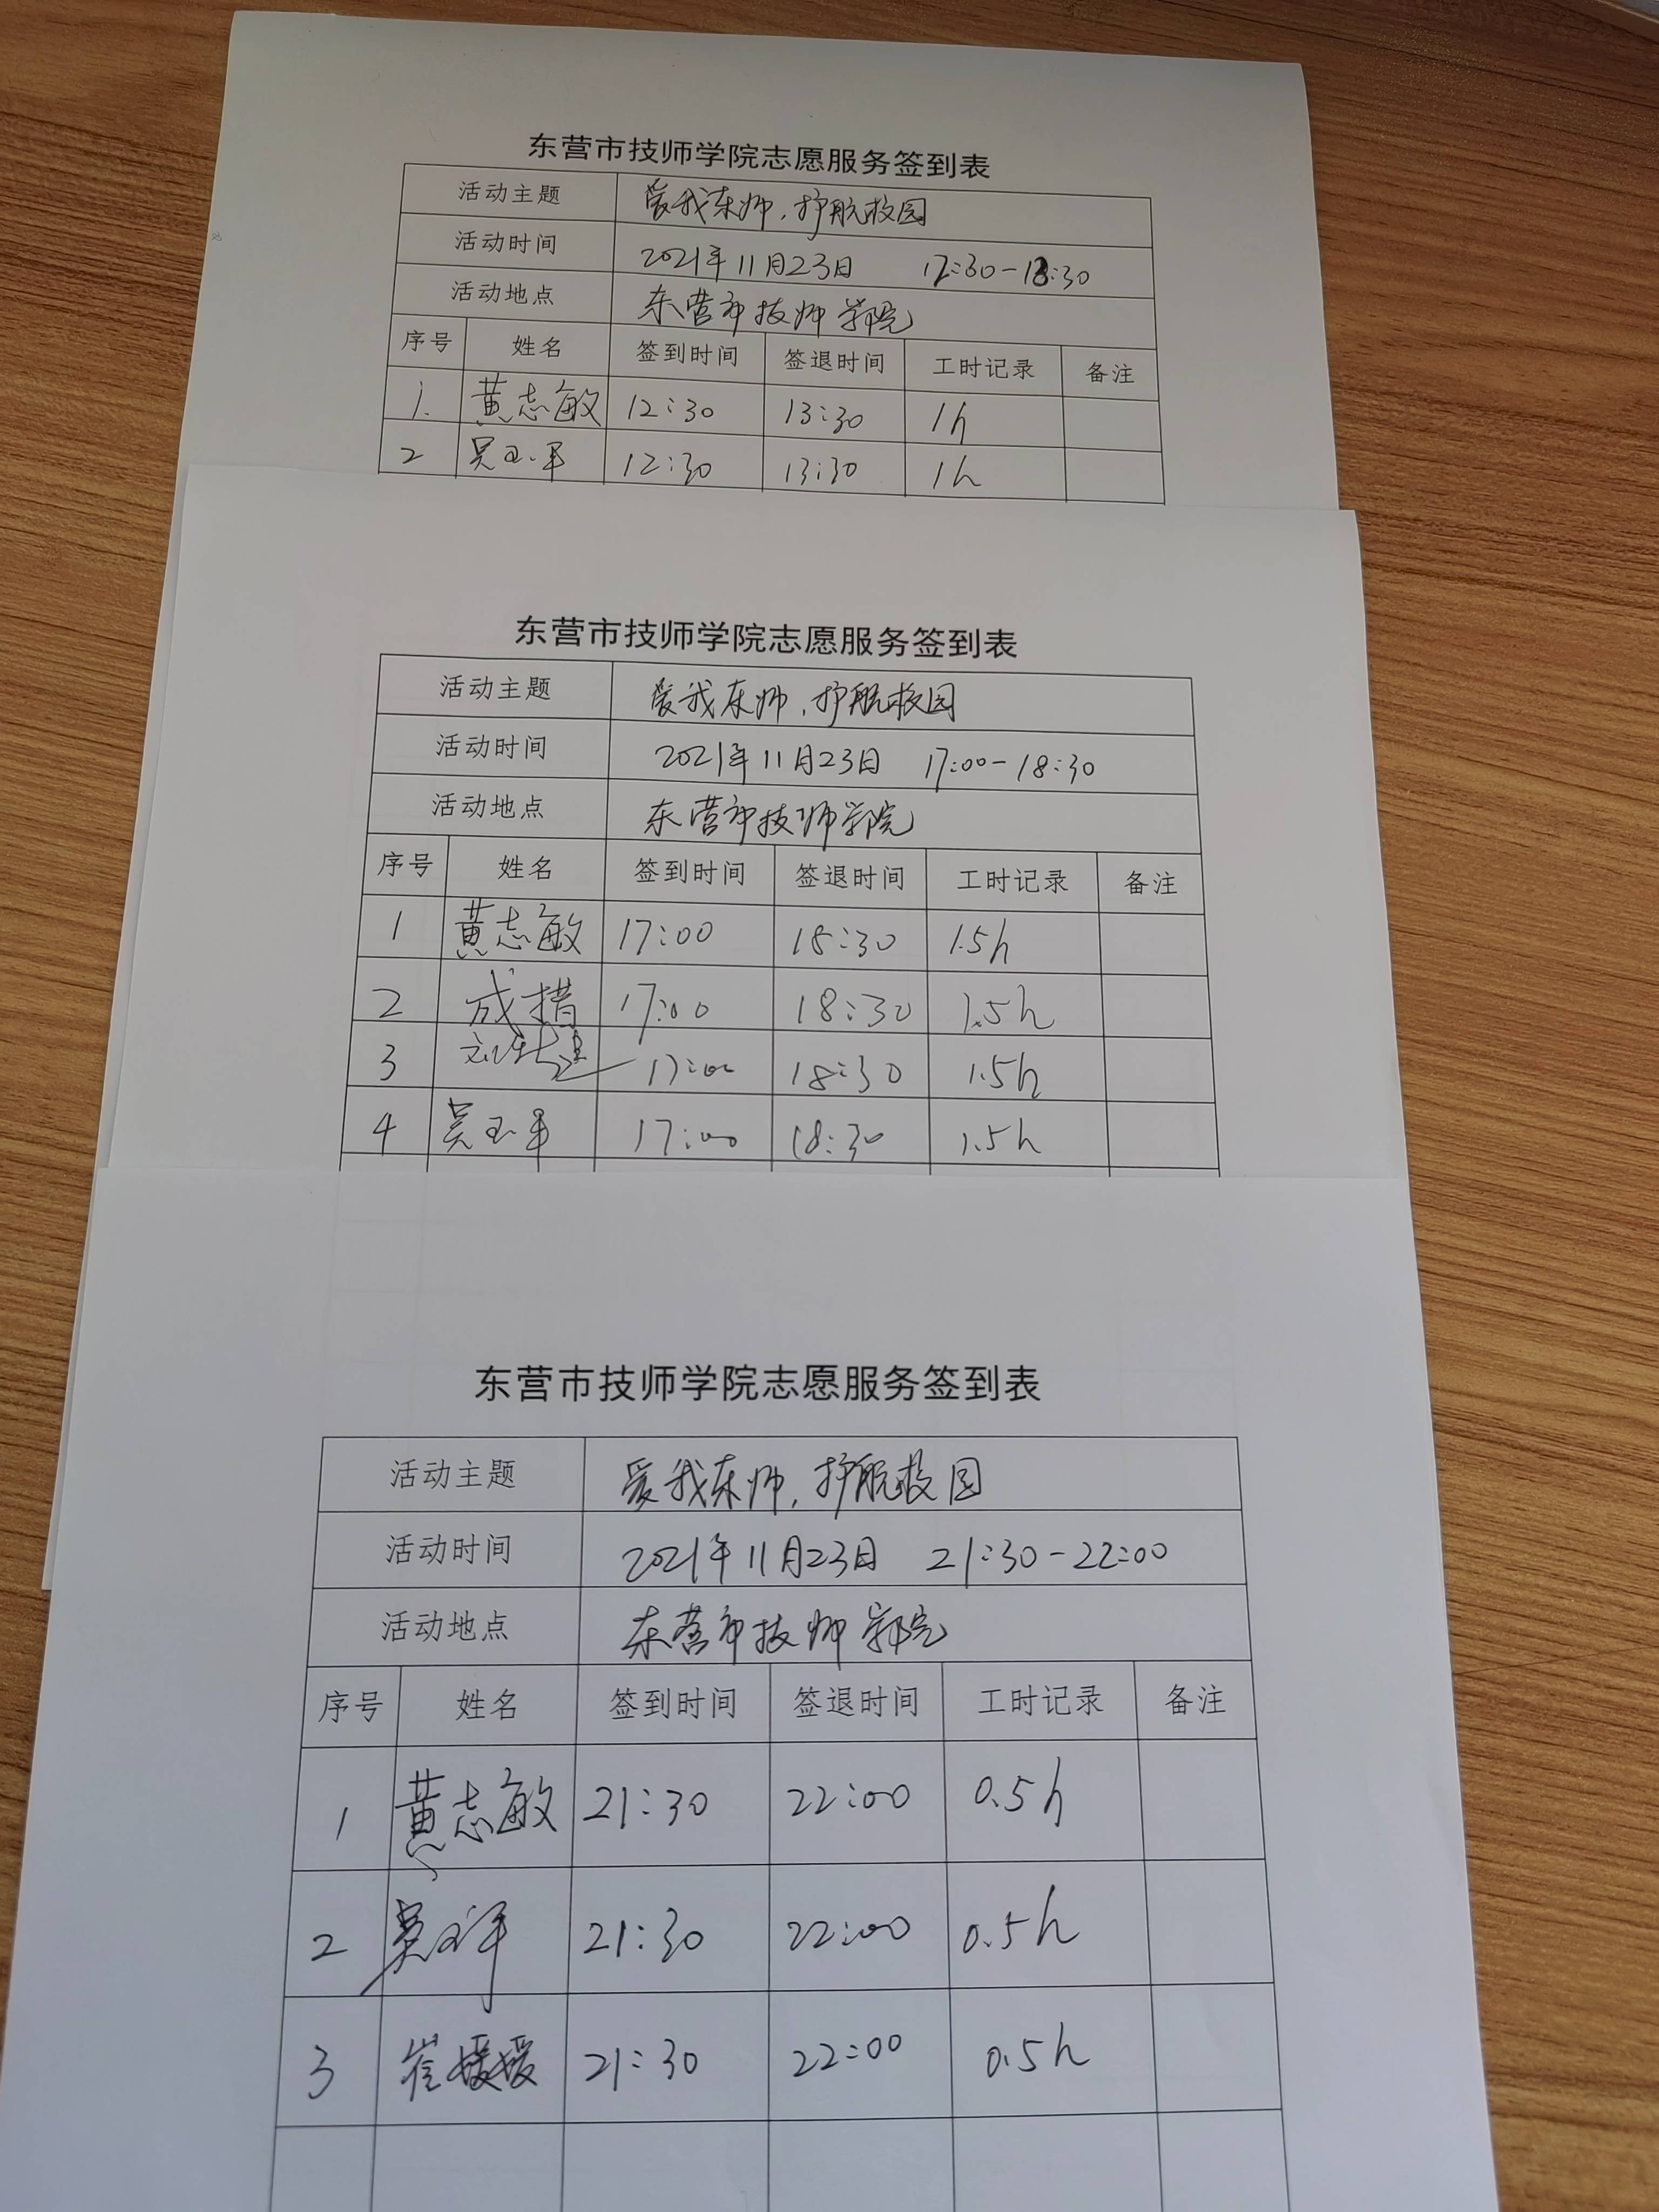 东营市技师学院志愿服务签到表
活动主题 爱我东师，护航校园
活动时间 2021年11月23日 12:30-13:30
活动地点 东营市技师学院
序号 姓名 签到时间 签退时间 工时记录 备注
1. 黄志敏 12:30 13:30 1h
2 12:30 13:30 1h
东营市技师学院志愿服务签到表
活动主题 爱我东师，护航校园
活动时间 2021年11月23日 17:00-18:30
活动地点 东营市技师学院
序号 姓名 签到时间 签退时间 工时记录 备注
1 黄志敏 17:00 18:30 1.5h
2 成措 17:00 18:30 1.5h
3 17:00 18:30 1.5h
4 17:00 18:30 1.5h
东营市技师学院志愿服务签到表
活动主题 爱我东师，护航校园
活动时间 2021年11月23日 21:30-22:00
活动地点 东营市技师学院
序号 姓名 签到时间 签退时间 工时记录 备注
1 黄志敏 21:30 22:00 0.5h
2 21:30 22:00 0.5h
3 崔媛媛 21:30 22:00 0.5h